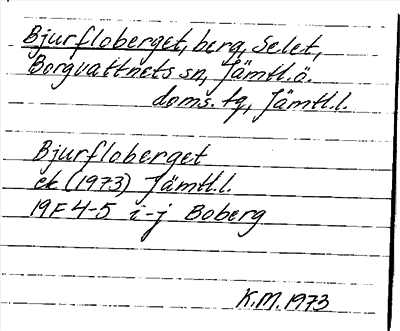 Bjurfloberget, berg, Selet,
Borgvattnets sn, Jämtl.ö.
doms. tg, Jämtl.l.
Bjurfloberget
ek (1973) Jämtl.l.
19F 4-5 i-j Boberg
K.M. 1973